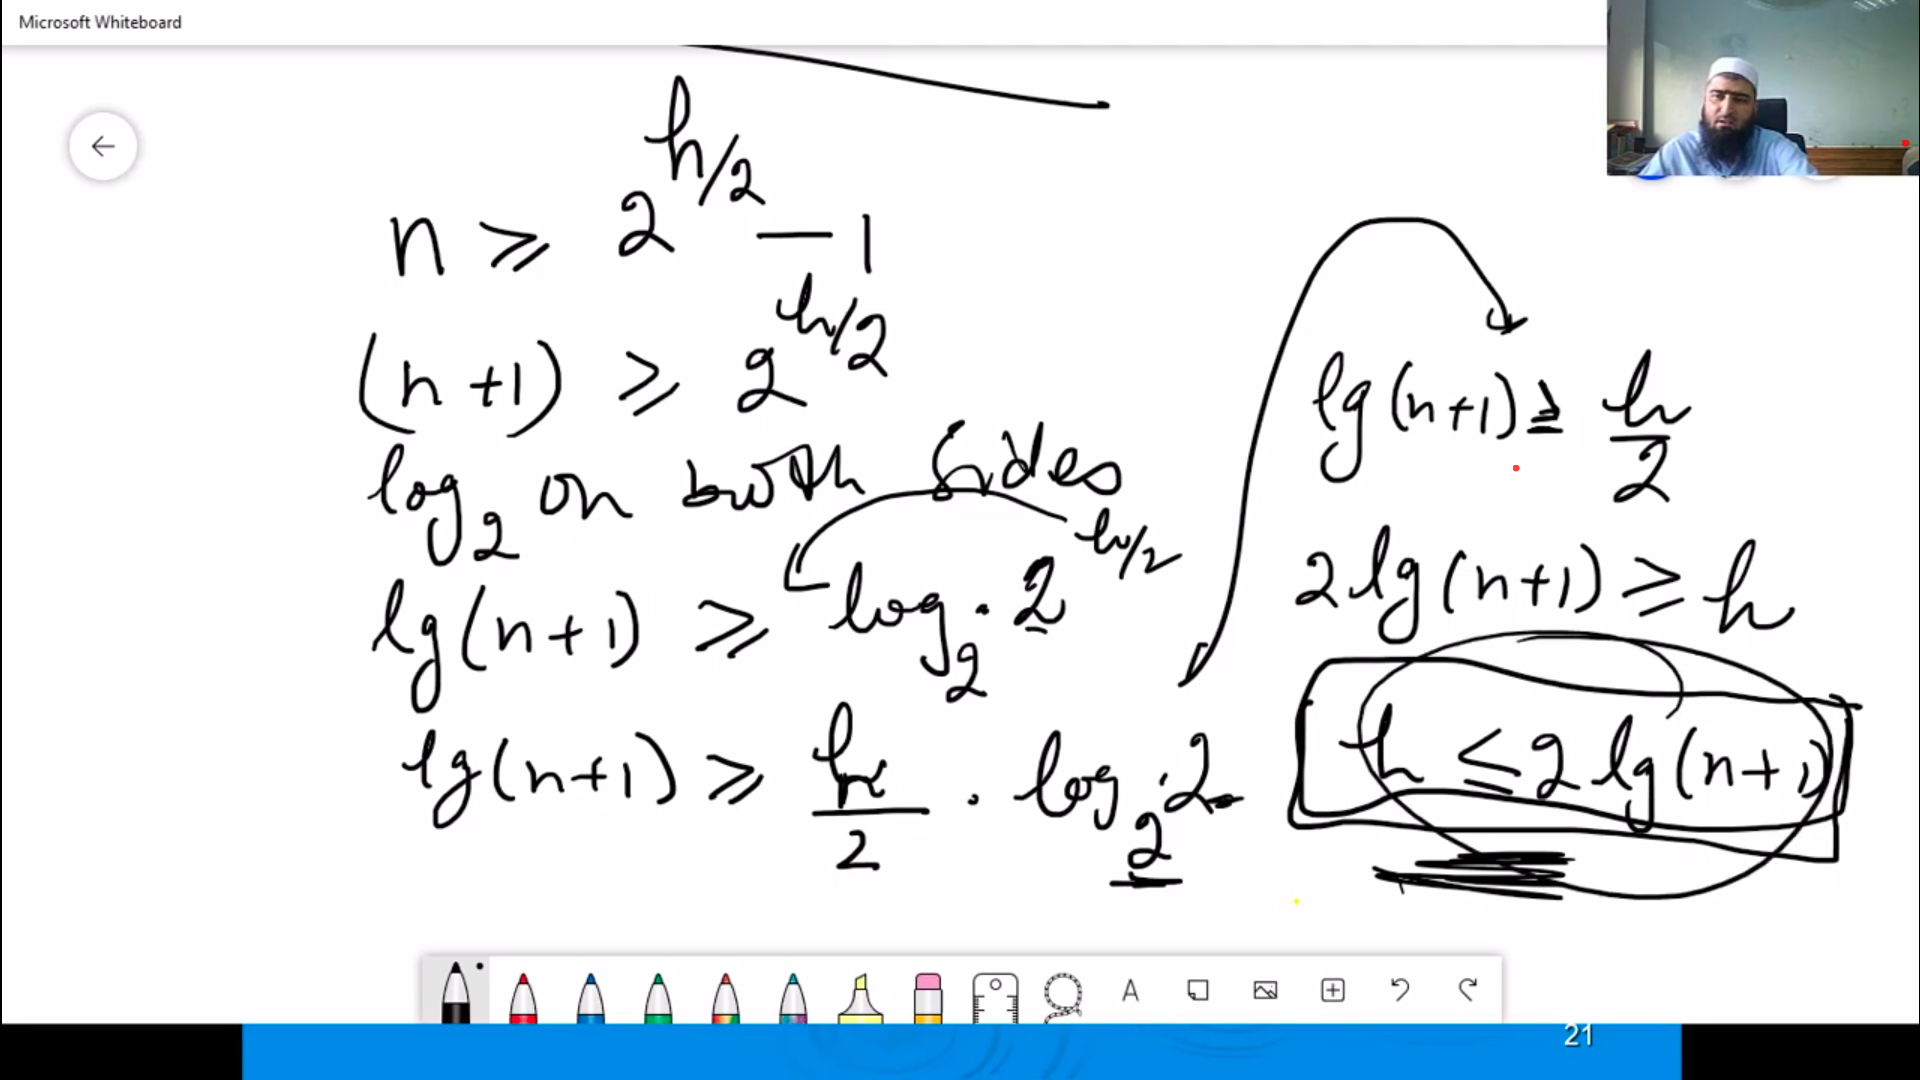 Microsoft Whiteboard
n ≥ 2^{h/2} − 1
(n+1) ≥ 2^{h/2}
log₂ on both sides
lg(n+1) ≥ log₂ · 2^{h/2}
lg(n+1) ≥ h/2 · log₂ · 2
lg(n+1) ≥ h/2
2lg(n+1) ≥ h
h ≤ 2lg(n+1)
A
21